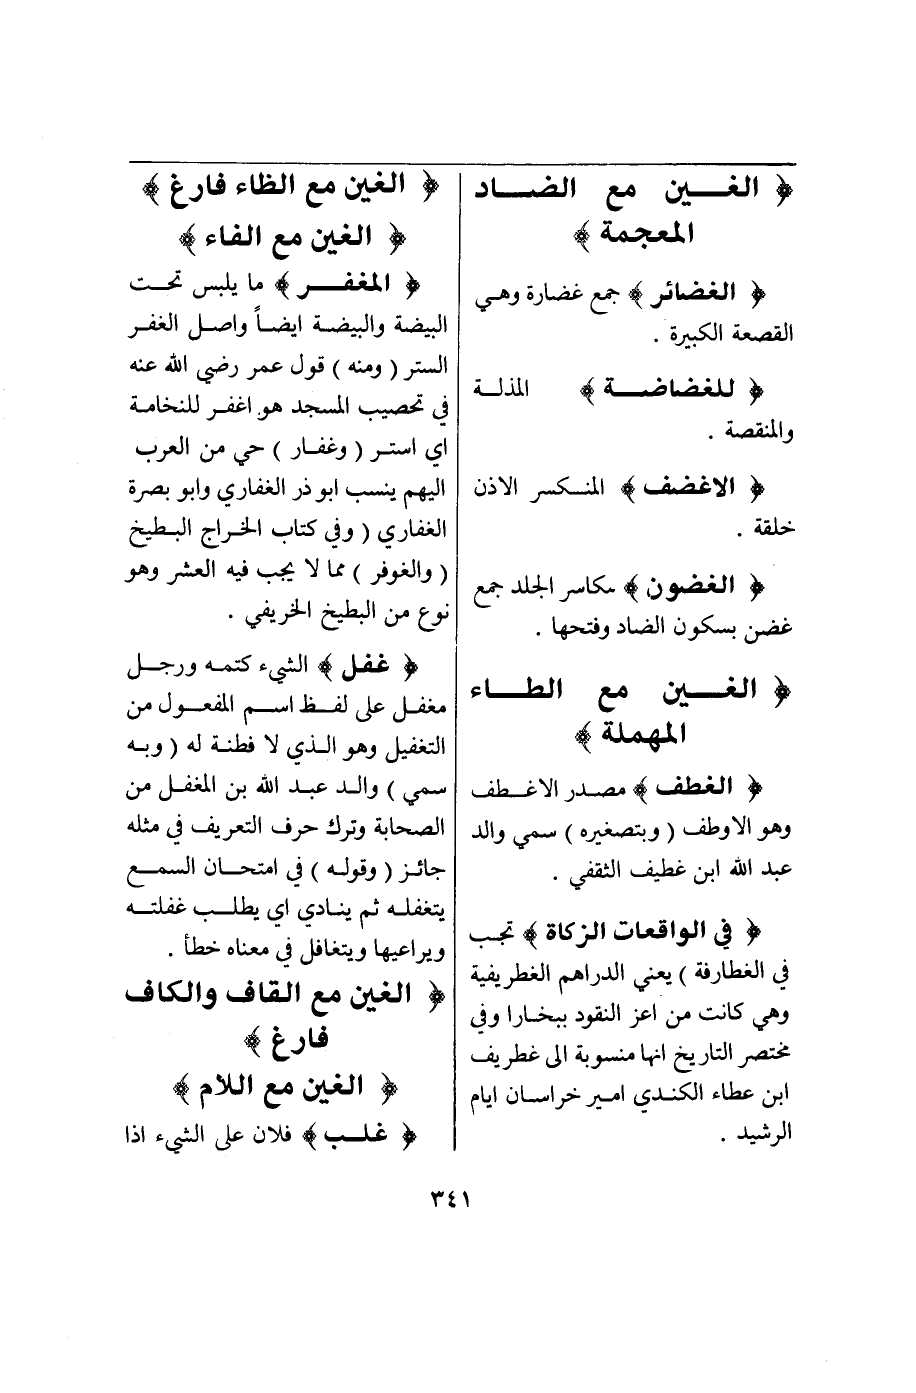 ﴿ الغـــين مع الضـــاد
المعجمة ﴾
﴿ الغضائر ﴾ جمع غضارة وهي
القصعة الكبيرة .
﴿ للغضاضـــة ﴾ المذلـة
والمنقصة .
﴿ الاغضف ﴾ المنـكسر الاذن
خلقة .
﴿ الغضون ﴾ مكاسر الجلد جمع
غضن بسكون الضاد وفتحها .
﴿ الغـــين مع الطـــاء
المهملة ﴾
﴿ الغطف ﴾ مصـدر الاغـطف
وهو الاوطف ( وبتصغيره ) سمي والد
عبد الله ابن غطيف الثقفي .
﴿ في الواقعات الزكاة ﴾ تجب
في الغطارفة ) يعني الدراهم الغطريفية
وهي كانت من اعز النقود ببخارا وفي
مختصر التاريخ انها منسوبة الى غطريف
ابن عطاء الكندي امير خراسان ايام
الرشيد .
﴿ الغين مع الظاء فارغ ﴾
﴿ الغين مع الفاء ﴾
﴿ المغفـــر ﴾ ما يلبس تحت
البيضة والبيضة ايضاً واصل الغفر
الستر ( ومنه ) قول عمر رضي الله عنه
في تحصيب المسجد هو اغفر للنخامة
اي استر ( وغفار ) حي من العرب
اليهم ينسب ابو ذر الغفاري وابو بصرة
الغفاري ( وفي كتاب الخراج البطيخ
( والغوفر ) مما لا يجب فيه العشر وهو
نوع من البطيخ الخريفي .
﴿ غفل ﴾ الشيء كتمه ورجل
مغفل على لفظ اسم المفعول من
التغفيل وهو الذي لا فطنة له ( وبه
سمي ) والد عبد الله بن المغفل من
الصحابة وترك حرف التعريف في مثله
جائز ( وقوله ) في امتحان السمع
يتغفله ثم ينادي اي يطلب غفلته
ويراعيها ويتغافل في معناه خطأ .
﴿ الغين مع القاف والكاف
فارغ ﴾
﴿ الغين مع اللام ﴾
﴿ غلـب ﴾ فلان على الشيء اذا
٣٤١